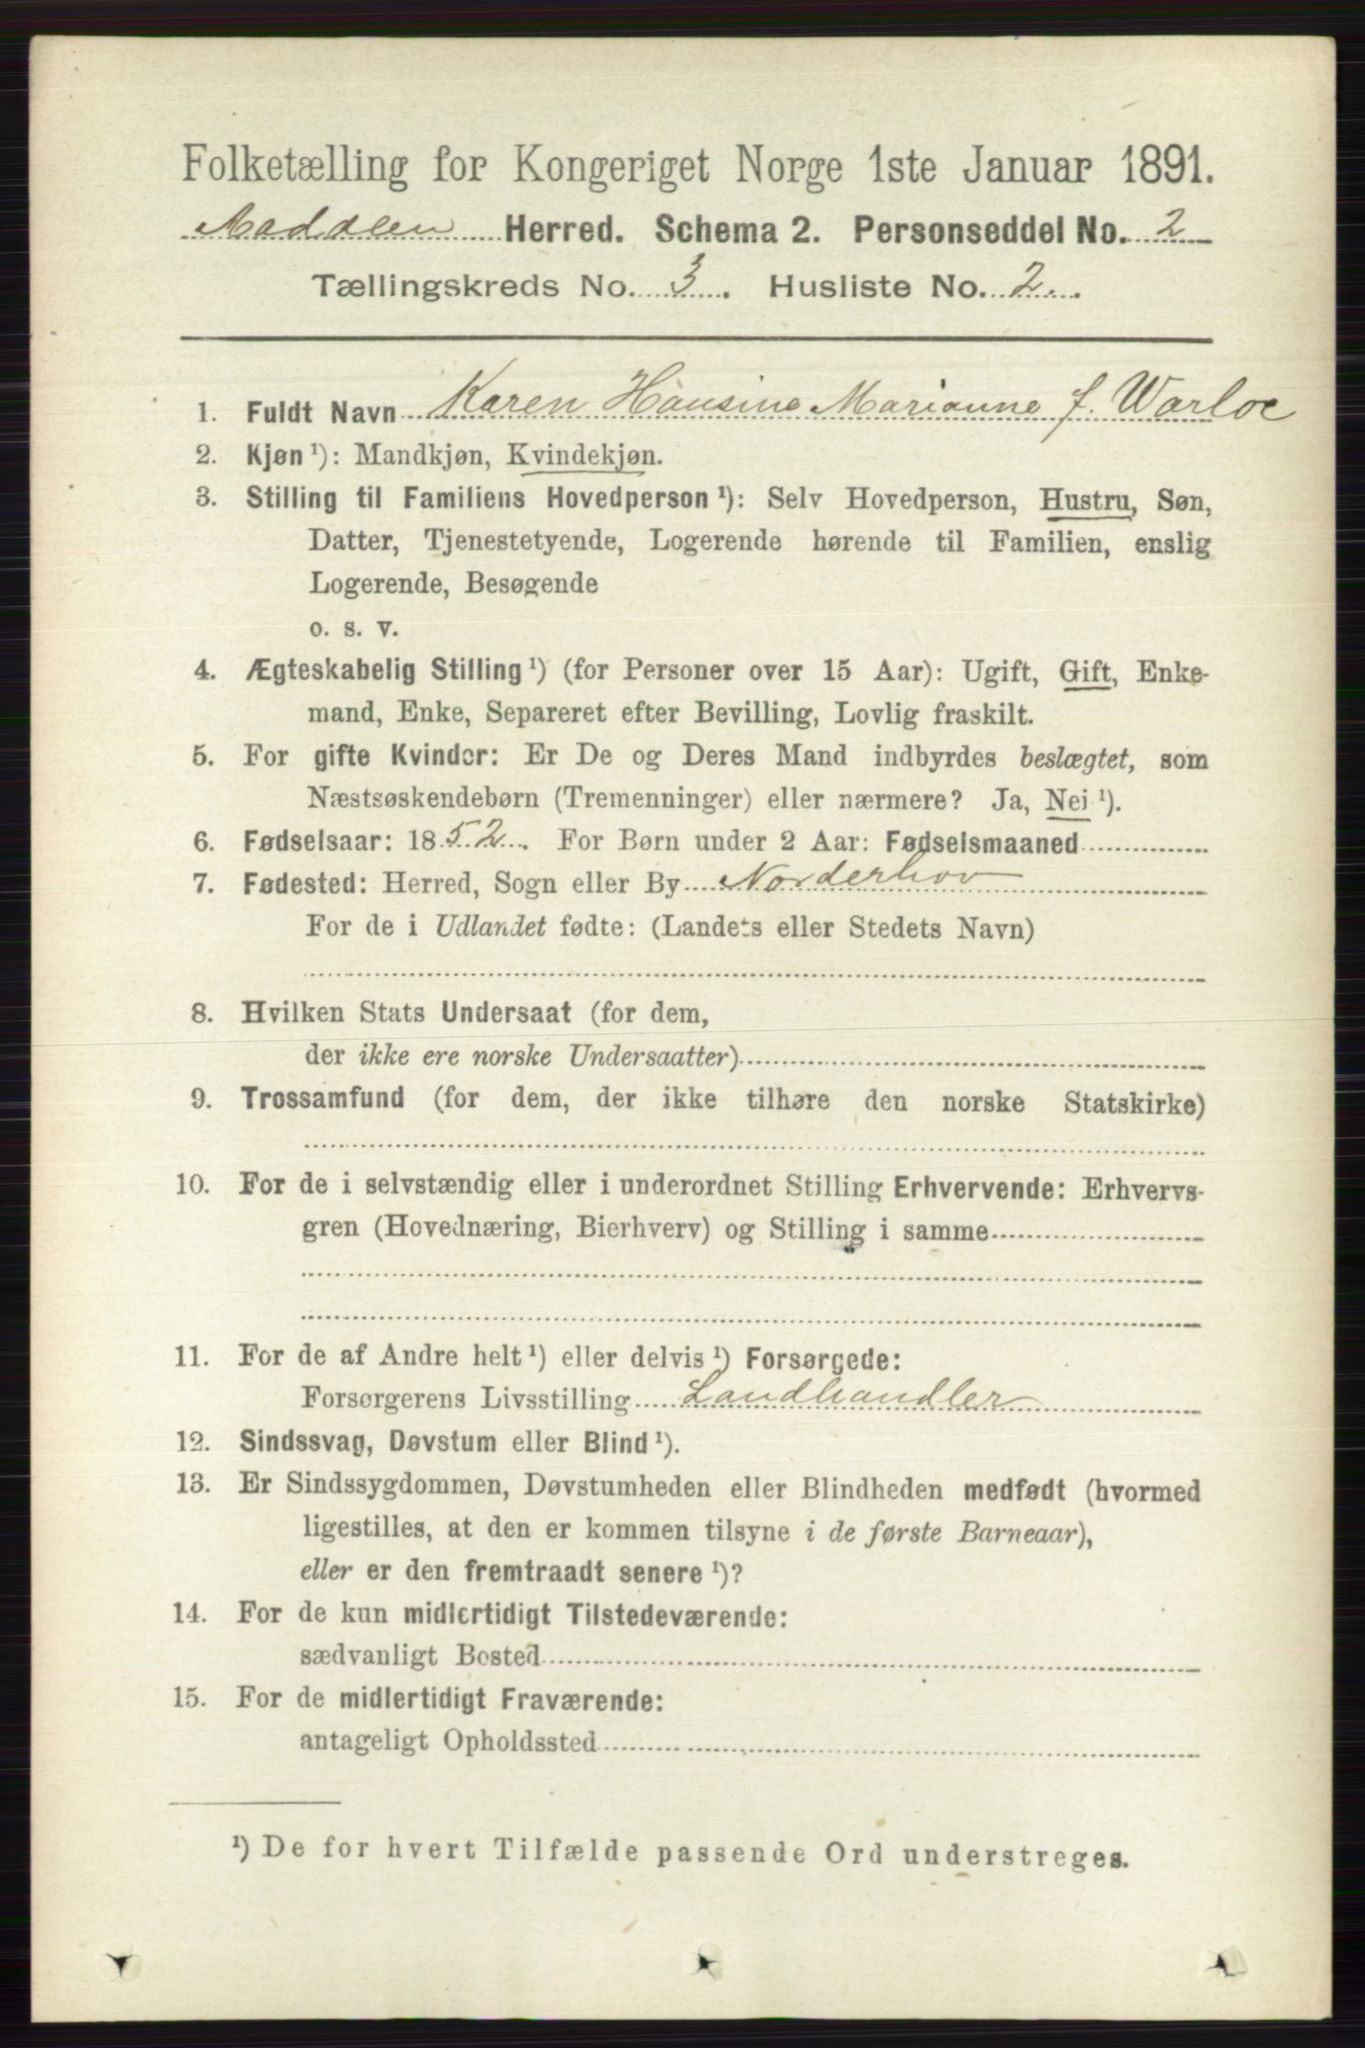 Folketælling for Kongeriget Norge 1ste Januar 1891.
Aadalen Herred. Schema 2. Personseddel No. 2
Tællingskreds No. 3. Husliste No. 2.
1. Fuldt Navn Karen Hansine Marianne f. Warloe
2. Kjøn ¹): Mandkjøn, Kvindekjøn.
3. Stilling til Familiens Hovedperson ¹): Selv Hovedperson, Hustru, Søn,
Datter, Tjenestetyende, Logerende hørende til Familien, enslig
Logerende, Besøgende
o. s. v.
4. Ægteskabelig Stilling ¹) (for Personer over 15 Aar): Ugift, Gift, Enke-
mand, Enke, Separeret efter Bevilling, Lovlig fraskilt.
5. For gifte Kvinder: Er De og Deres Mand indbyrdes beslægtet, som
Næstsøskendebørn (Tremenninger) eller nærmere? Ja, Nei ¹).
6. Fødselsaar: 1852. For Børn under 2 Aar: Fødselsmaaned
7. Fødested: Herred, Sogn eller By Norderhov
For de i Udlandet fødte: (Landets eller Stedets Navn)
8. Hvilken Stats Undersaat (for dem,
der ikke ere norske Undersaatter)
9. Trossamfund (for dem, der ikke tilhøre den norske Statskirke)
10. For de i selvstændig eller i underordnet Stilling Erhvervende: Erhvervs-
gren (Hovednæring, Bierhverv) og Stilling i samme
11. For de af Andre helt ¹) eller delvis ¹) Forsørgede:
Forsørgerens Livsstilling Landhandler
12. Sindssvag, Døvstum eller Blind ¹).
13. Er Sindssygdommen, Døvstumheden eller Blindheden medfødt (hvormed
ligestilles, at den er kommen tilsyne i de første Barneaar),
eller er den fremtraadt senere ¹)?
14. For de kun midlertidigt Tilstedeværende:
sædvanligt Bosted
15. For de midlertidigt Fraværende:
antageligt Opholdssted
¹) De for hvert Tilfælde passende Ord understreges.